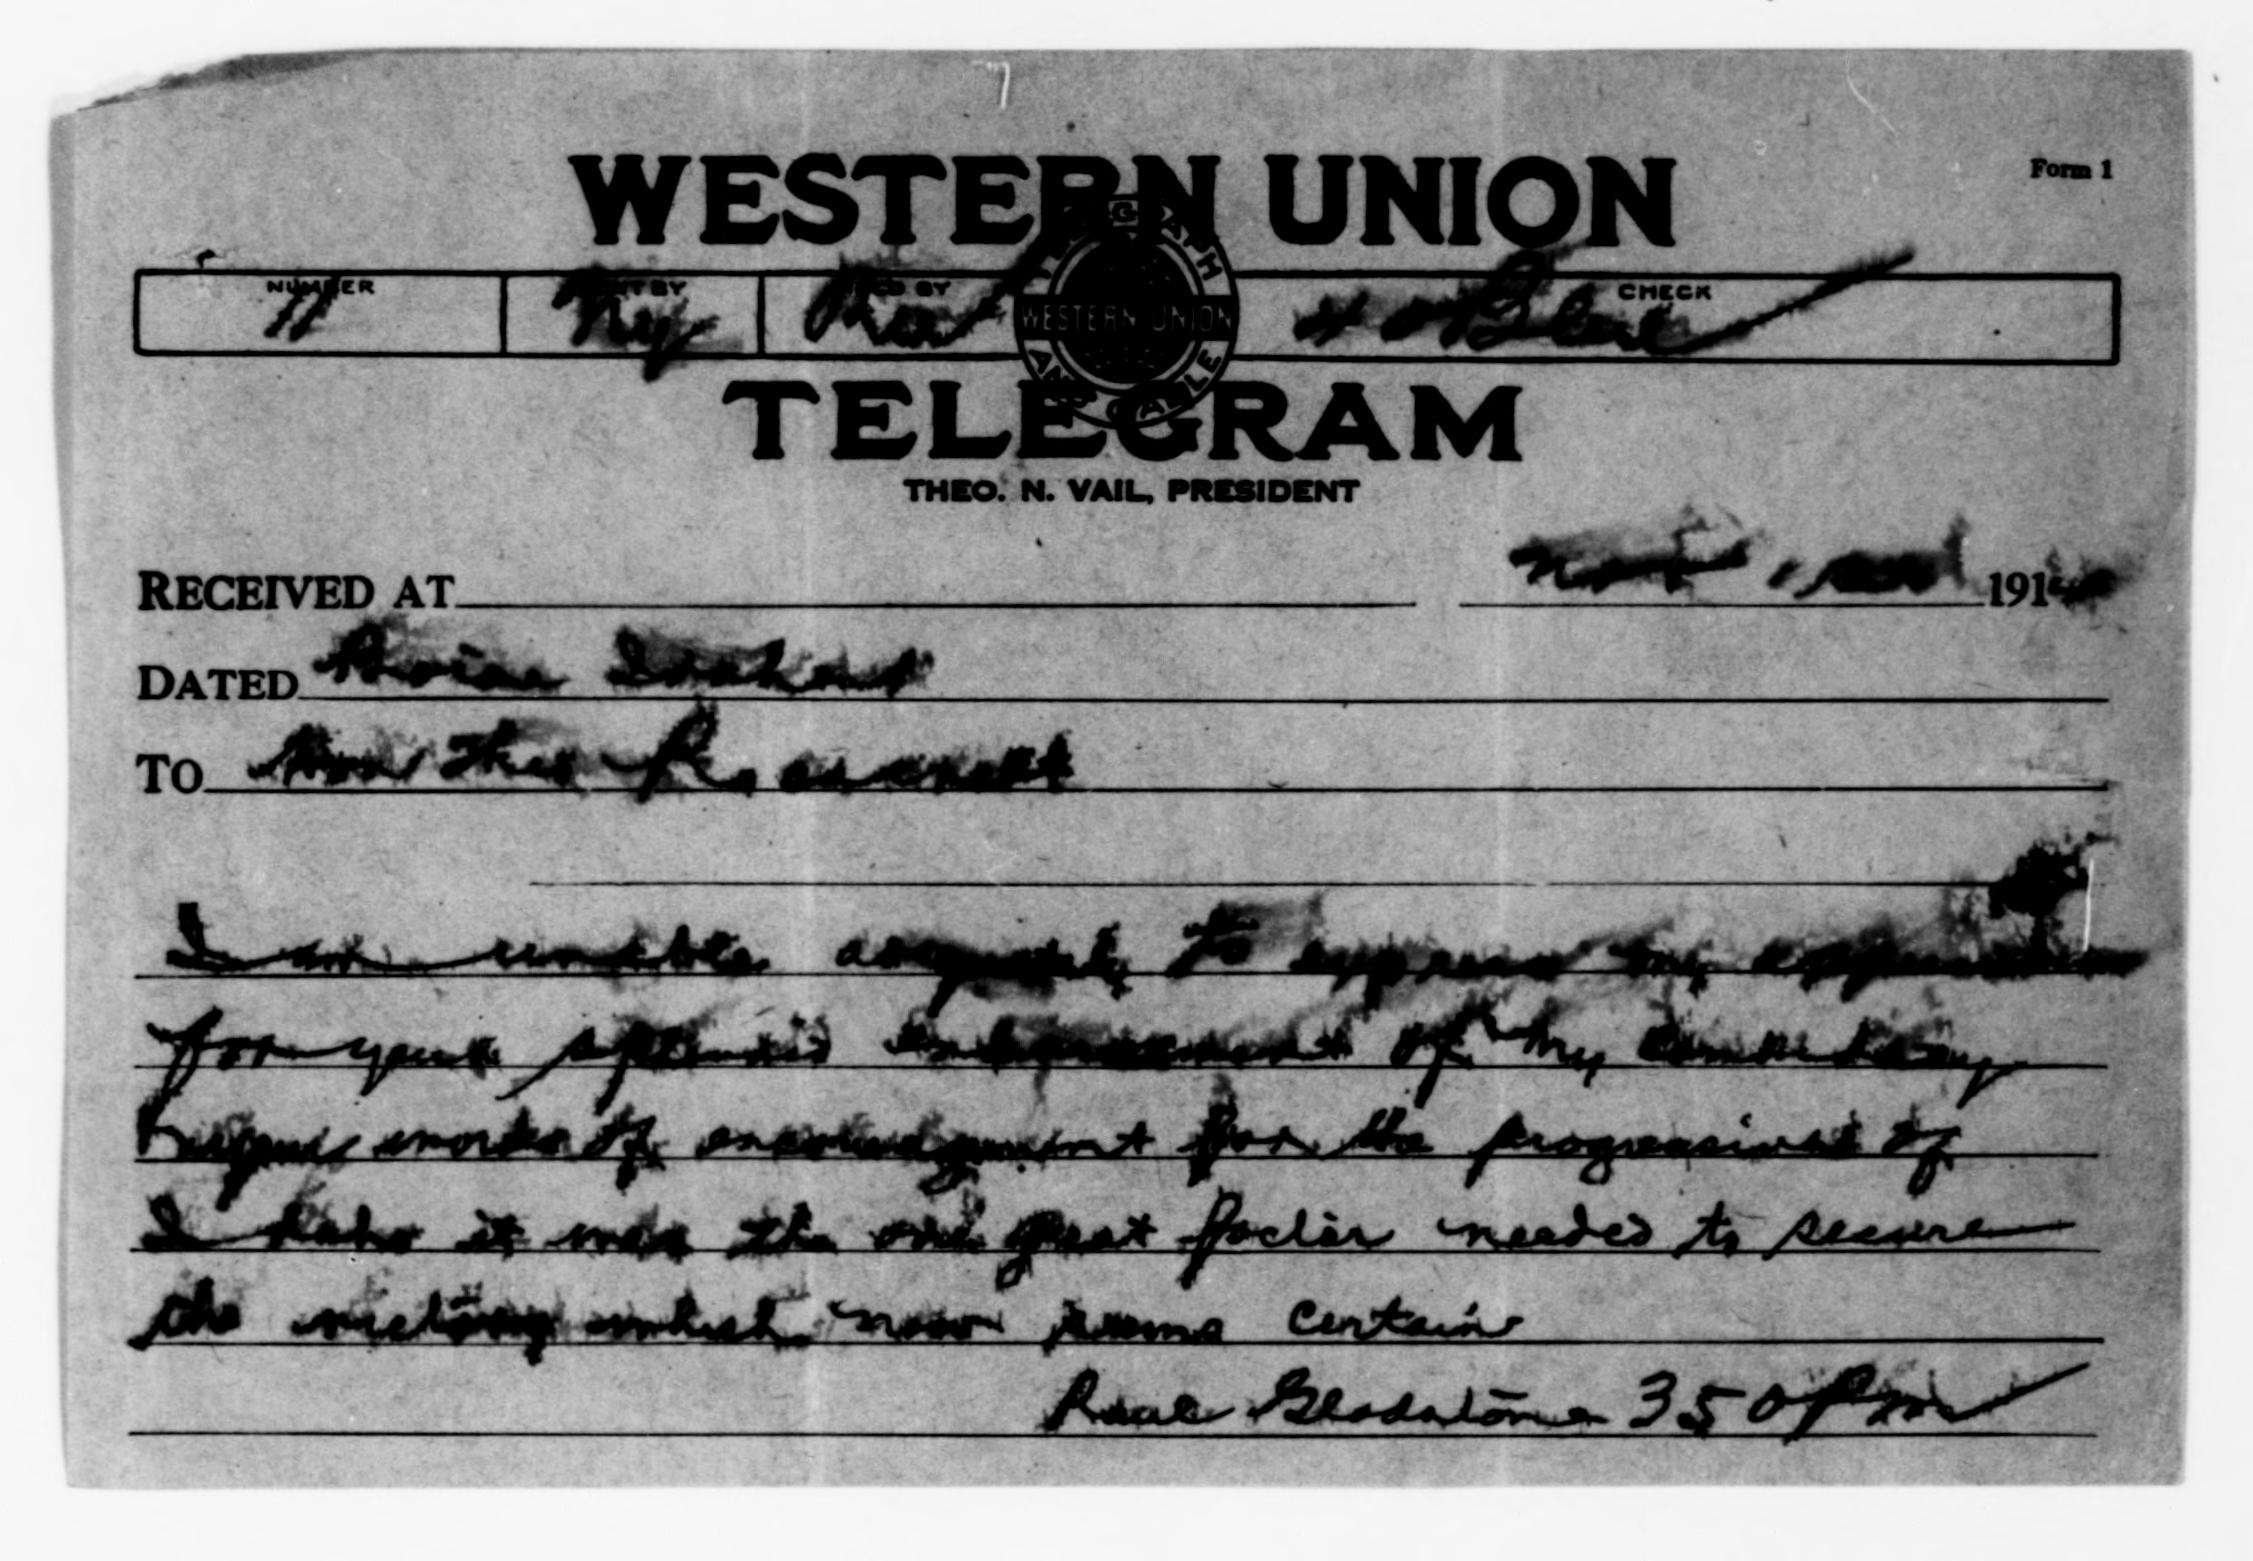 Form 1
WESTERN UNION
NUMBER SENT BY REC'D BY CHECK
11 Ny Blue
TELEGRAPH AND CABLE
WESTERN UNION
TELEGRAM
THEO. N. VAIL, PRESIDENT
RECEIVED AT Nov 1 191
DATED Boise Idaho
TO Hon Theo Roosevelt
I am unable to express my appreciation
for your splendid endorsement of my candidacy
words of encouragement for the progressives of
Idaho it was the one great factor needed to secure
the victory which now seems certain
Paul Gladstone 350 Pm